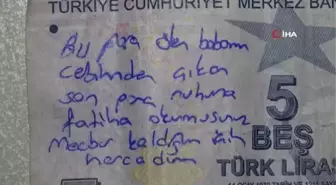 TÜRKİYE CUMHURİYET MERKEZ BAN
İHA
Bu para ölen babamın
cebinden çıkan
son para ruhuna
fatiha okurmusunuz
Mecbur kaldığım için
harcadım
5
BEŞ
TÜRK LİRAS